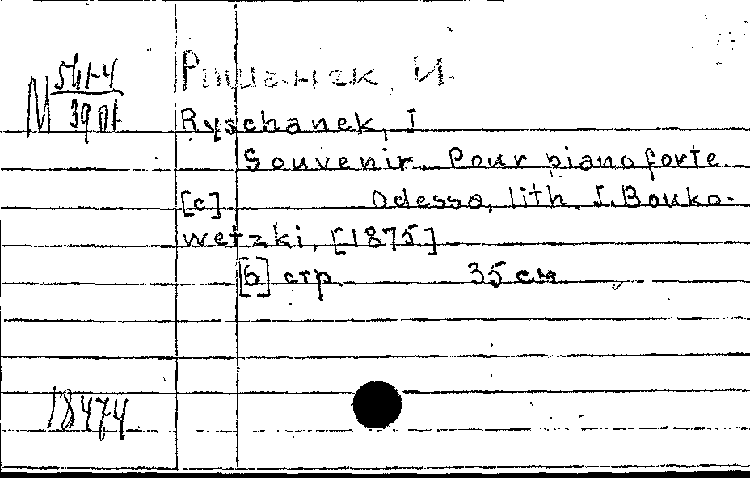 М 541-4
39 01
Ришанек, И.
Ryschanek, I
Souvenir. Pour pianoforte.
[c] Odessa, lith. I. Bouko-
wetzki, [1875]
[6] стр. 35 см
18474